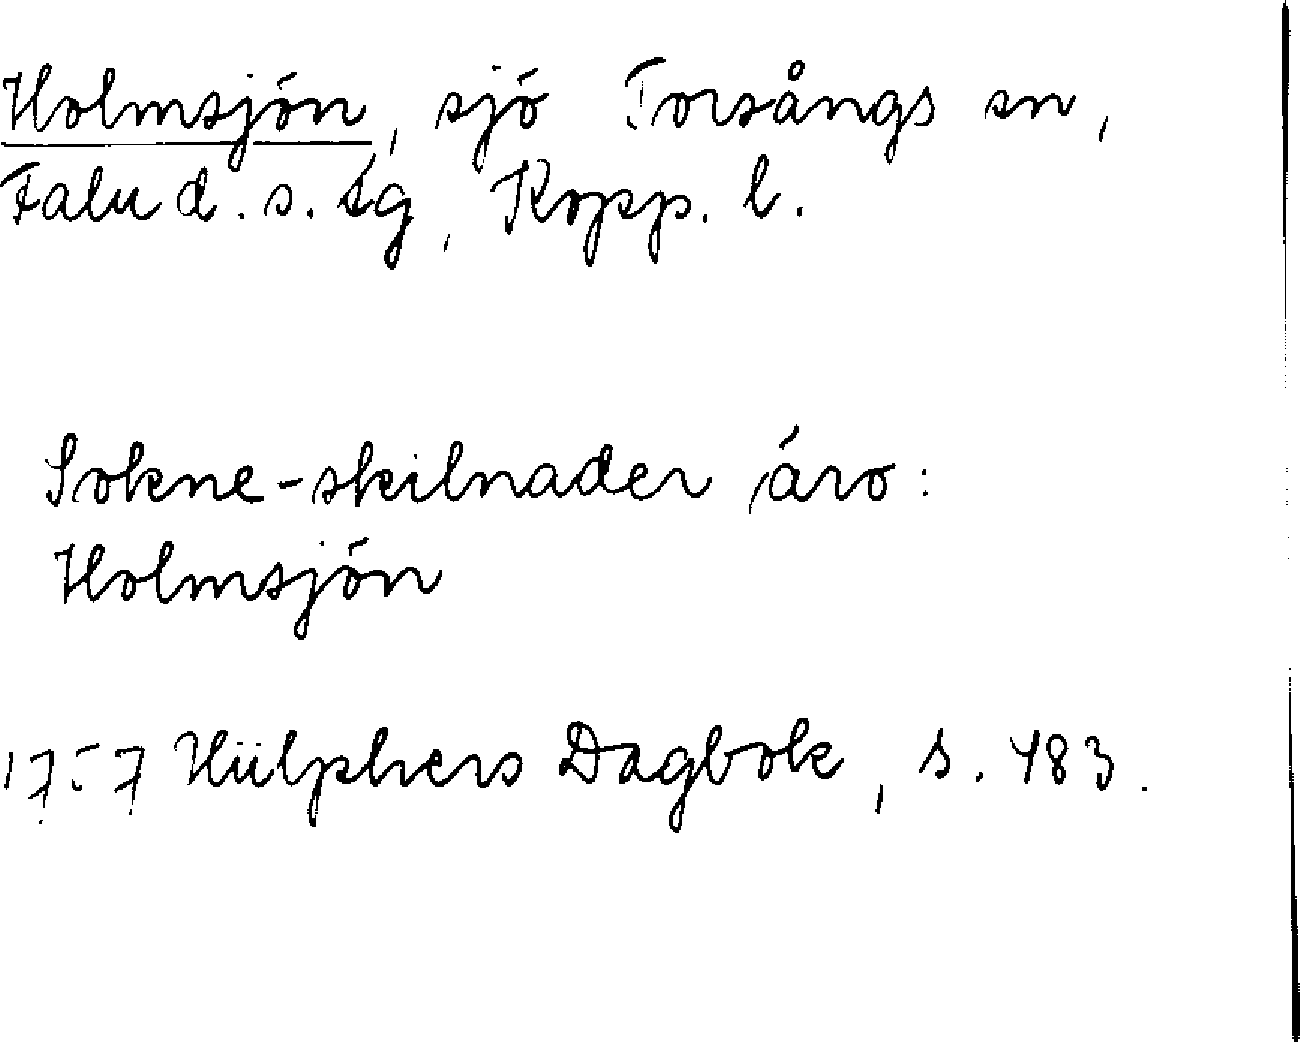 Holmsjön, sjö Torsångs sn,
Falu d. s. tg, Kopp. l.
Sokne-skilnader äro:
Holmsjön
1757 Hülphers Dagbok, s. 483.